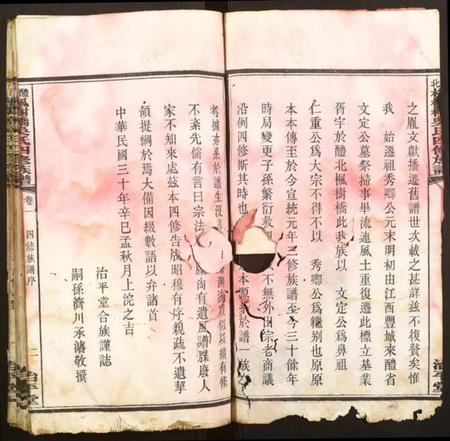 之胤文獻播遷舊譜世次載之甚詳茲不復贅矣惟
我 始遷祖秀卿公元末明初由江西豐城來醴省
文定公墓祭掃事畢流連風土重復遷此標立基業
胥宇於醴北楓樹橋此我族以 文定公為鼻祖
仁重公為大宗不得不以 秀卿公為繼別也原原
本本傳至於今宣統元年 修族譜至今三十餘年
時局變更子孫繁衍 不無外出 宗老商議
沿例四修斯其時也 本
考據亦系於譜生沒 以續有條
不紊先儒有言曰宗法 尚有遺風譜牒廢人
家不知來處茲本四修告成昭穆有序親疏不遺挈
領提綱於焉大備因綴數語以弁諸首
中華民國三十年辛巳孟秋月上浣之吉
治平堂合族謹誌
嗣孫濟川承濬敬撰
卷 四修族譜序
二
治平堂